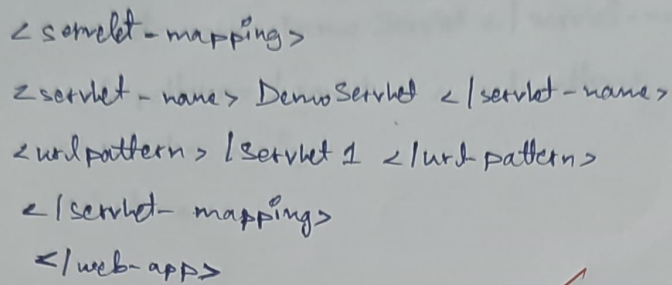 <servlet-mapping>
<servlet-name> DemoServlet </servlet-name>
<url pattern> /Servlet 1 </url pattern>
</servlet-mapping>
</web-app>